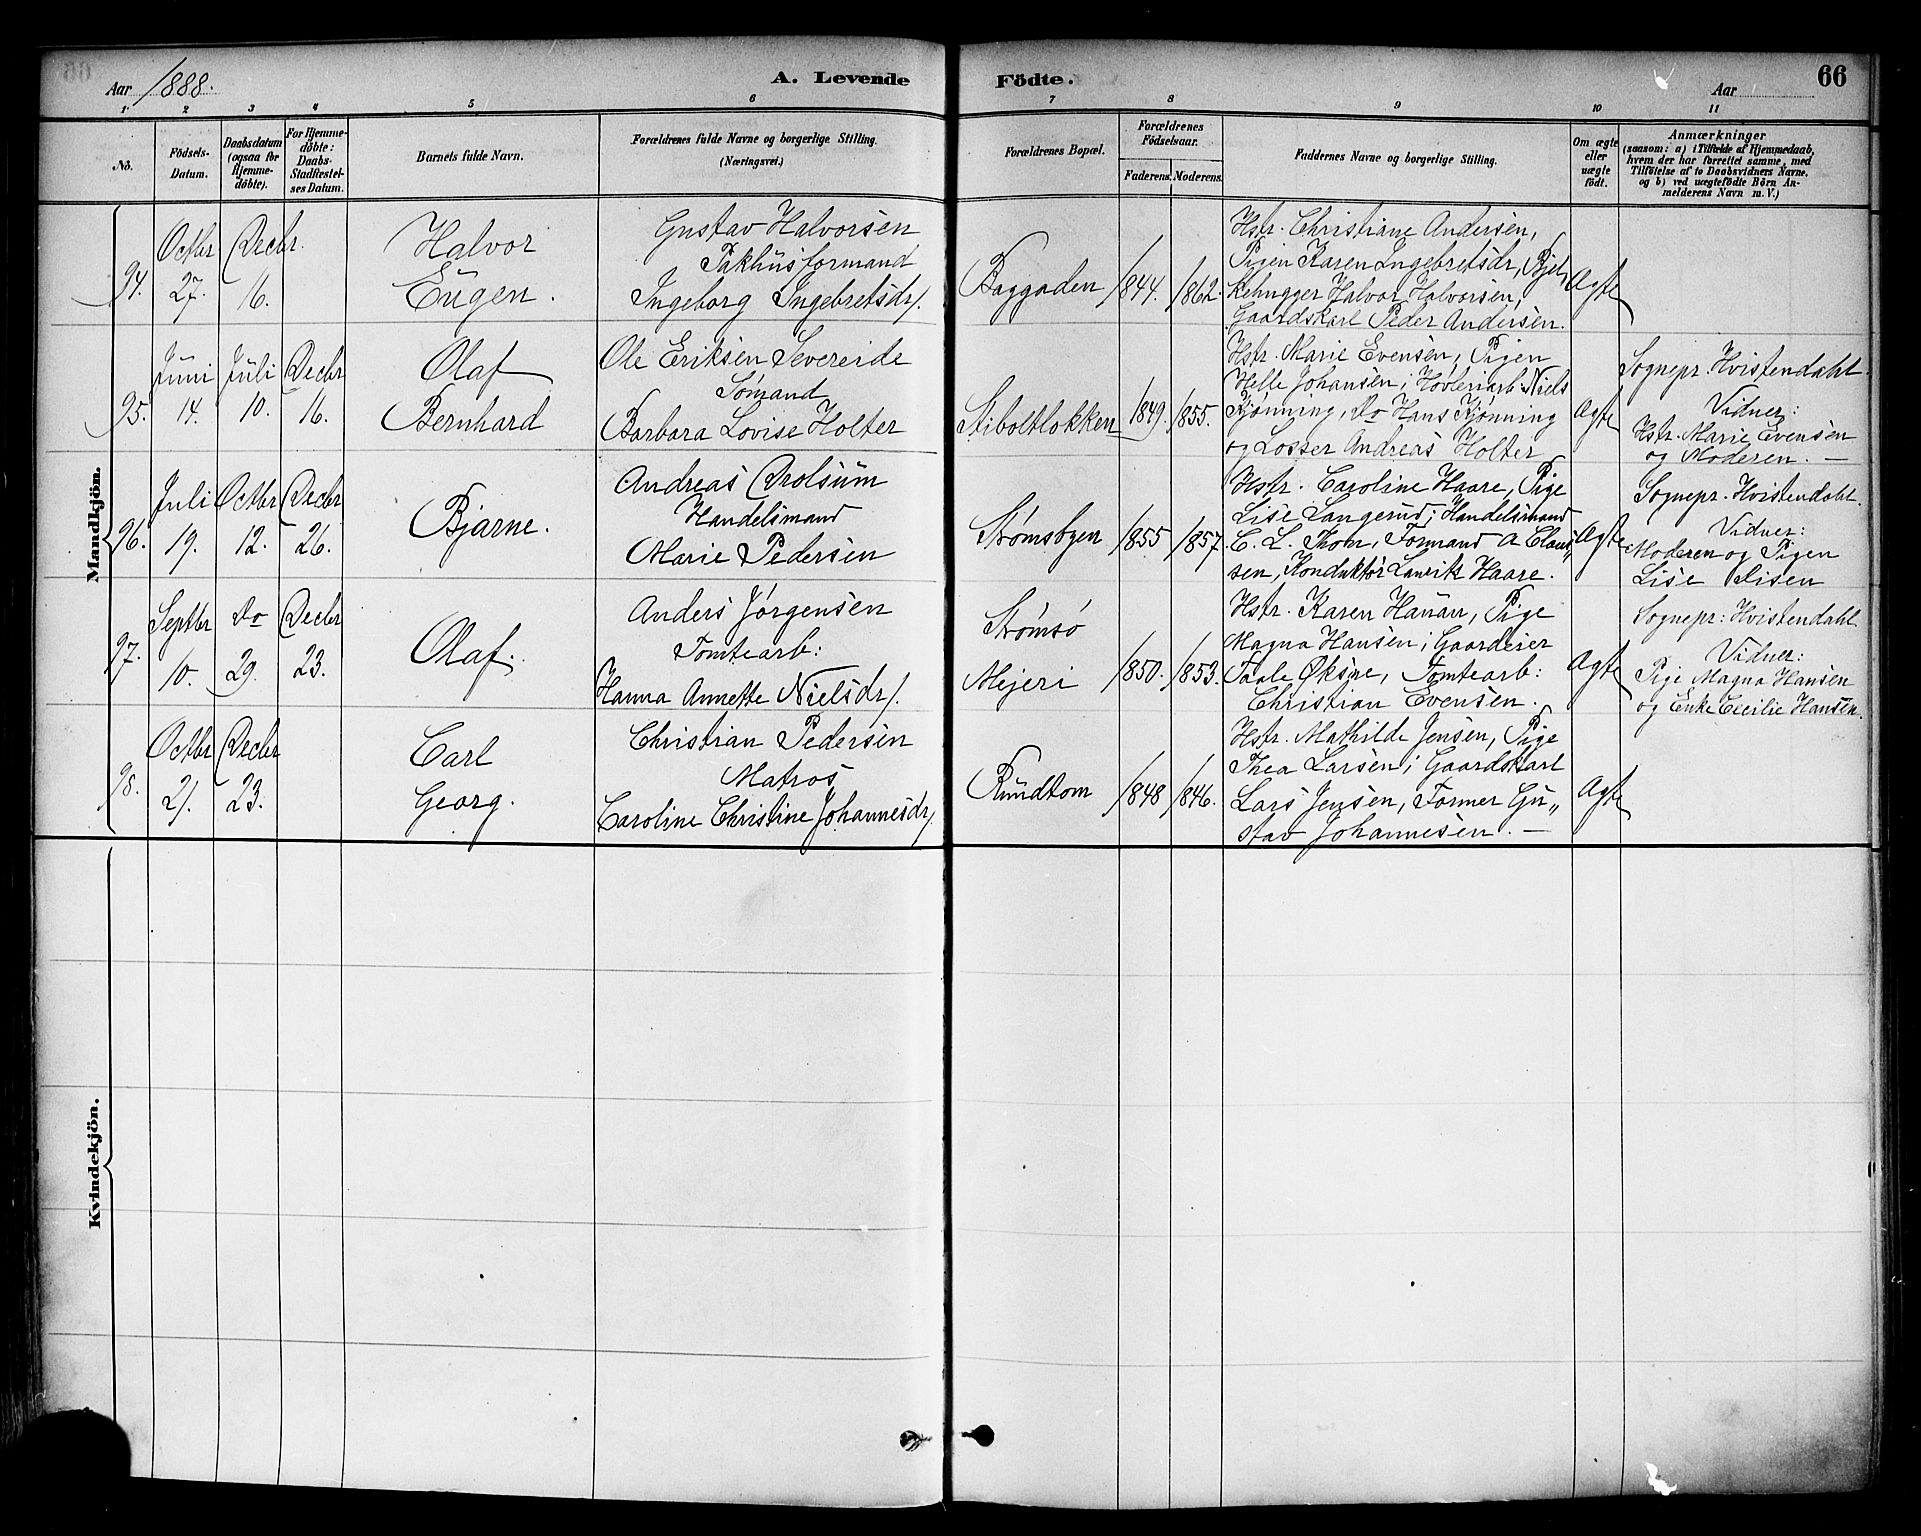 Aar 1888.
A. Levende
Födte.
Aar
66
1 2 3 4 5 6 7 8 9 10 11
No.
Födsels-
Datum.
Daabsdatum
(ogsaa for
Hjemme-
döbte).
For Hjemme-
döbte:
Daabs-
Stadfæstel-
ses Datum.
Barnets fulde Navn.
Forældrenes fulde Navne og borgerlige Stilling.
(Næringsvei.)
Forældrenes Bopæl.
Forældrenes
Födselsaar.
Faderens. Moderens.
Faddernes Navne og borgerlige Stilling.
Om ægte
eller
uægte
födt.
Anmærkninger
(saasom: a) i Tilfælde af Hjemmedaab,
hvem der har forrettet samme, med
Tilföielse af to Daabsvidners Navne,
og b) ved uægtefödte Börn An-
melderens Navn m. V.)
Mandkjön.
94.
Octbr
27.
Decbr.
16.
Halvor
Eugen.
Gustav Halvorsen
Pakhusformand
Ingeborg Ingebretsdr.
Baggaden
1844. 1862.
Hstr. Christiane Andersen,
Pigen Karen Ingebretsdr,
Halvor Halvorsen,
Gaardskarl Peder Andersen.
Ægte
95.
Juni
14.
Juli
10.
Decbr
16.
Olaf
Bernhard
Ole Eriksen Severeide
Sømand
Barbara Lovise Holter
Stiboltløkken
1849. 1855.
Hstr. Marie Evensen, Pigen
Helle Johansen; Høvleriarb: Niels
Kjønning, Do Hans Kjønning
og Losser Andreas Holter
Ægte
Sognepr. Hvistendahl.
Vidner:
Hstr. Marie Evensen
og Moderen. —
96.
Juli
19.
Octbr
12.
Decbr
26.
Bjarne.
Andreas Drolsum
Handelsmand
Marie Pedersen
Strømsbyen
1855 1857.
Hstr. Caroline Haare, Pige
Lise Langerud; Handelsmand
C. L. Thom, Formand A Claus„
sen, Konduktør Laurik Haare.
Ægte
Sognepr. Hvistendahl.
Vidner:
Moderen og Pigen
Lise
97.
Septbr
10.
Do
29.
Decbr
23.
Olaf.
Anders Jørgensen
Tomtearb:
Hanna Annette Nielsdr.
Strømsø
Meieri
1850. 1853.
Hstr. Karen Hanan, Pige
Magna Hansen; Gaardeier
Paale Øksne, Tomtearb:
Christian Evensen.
Ægte
Sognepr: Hvistendahl.
Vidner:
Pige Magna Hansen
og Enke Cecilie Hansen.
98.
Octbr
21.
Decbr
23.
Carl
Georg.
Christian Pedersen
Matros
Caroline Christine Johannesdr.
Rundtom
1848 1846.
Hstr. Mathilde Jensen, Pige
Thea Larsen; Gaardskarl
Lars Jensen, Former Gu„
stav Johannesen. —
Ægte
Kvindekjön.